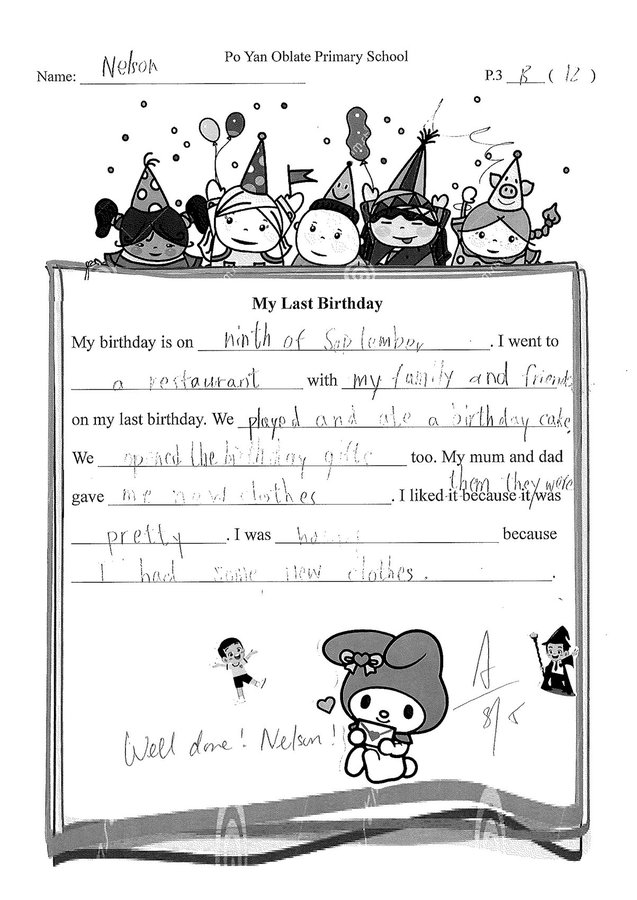 Po Yan Oblate Primary School
Name: Nelson P.3 B ( 12 )
My Last Birthday
My birthday is on ninth of September . I went to
a restaurant with my family and friends
on my last birthday. We played and ate a birthday cake.
We opened the birthday gifts too. My mum and dad
them they were
gave me new clothes . I liked it because it was
pretty . I was happy because
I had some new clothes. .
A
8/5
Well done! Nelson!